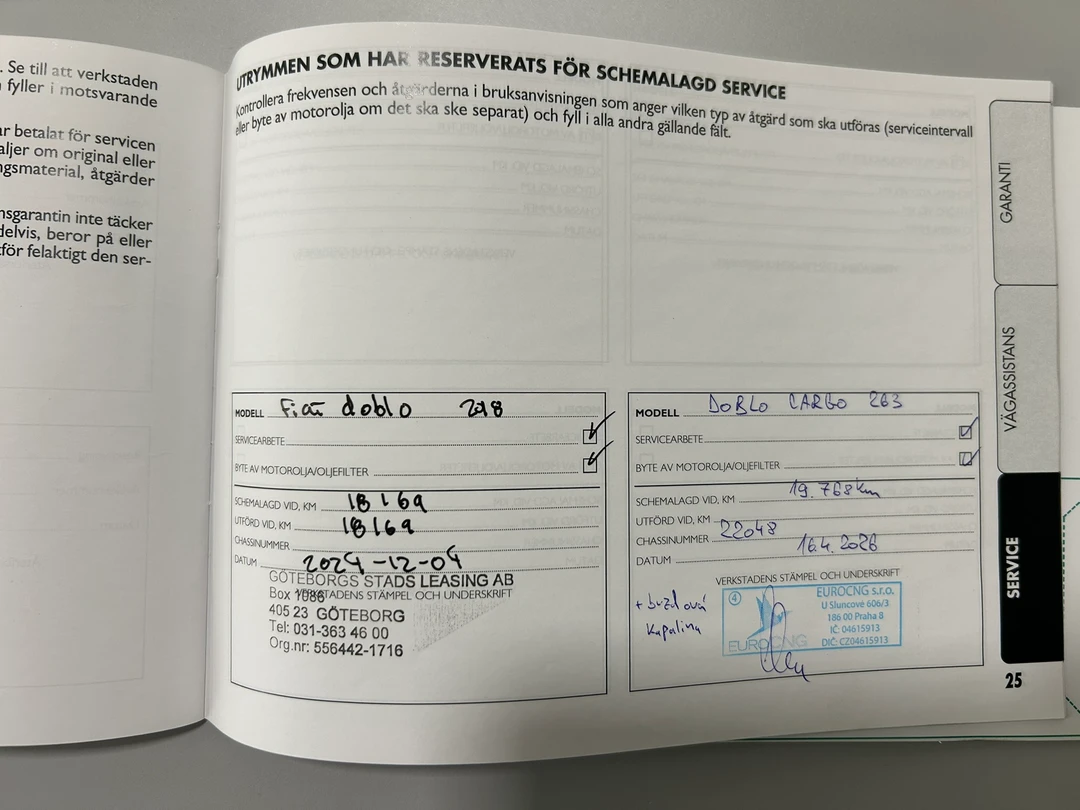 . Se till att verkstaden
fyller i motsvarande
ar betalat för servicen
aljer om original eller
ngsmaterial, åtgärder
nsgarantin inte täcker
delvis, beror på eller
tför felaktigt den ser-
UTRYMMEN SOM HAR RESERVERATS FÖR SCHEMALAGD SERVICE
Kontrollera frekvensen och åtgärderna i bruksanvisningen som anger vilken typ av åtgärd som ska utföras (serviceintervall
eller byte av motorolja om det ska ske separat) och fyll i alla andra gällande fält.
MODELL Fiat doblo 2018
SERVICEARBETE
BYTE AV MOTOROLJA/OLJEFILTER
SCHEMALAGD VID, KM 18169
UTFÖRD VID, KM 18169
CHASSINUMMER
DATUM 2024-12-04
GÖTEBORGS STADS LEASING AB
VERKSTADENS STÄMPEL OCH UNDERSKRIFT
Box 1086
405 23 GÖTEBORG
Tel: 031-363 46 00
Org.nr: 556442-1716
MODELL DOBLO CARGO 263
SERVICEARBETE
BYTE AV MOTOROLJA/OLJEFILTER
SCHEMALAGD VID, KM 19.768km
UTFÖRD VID, KM
CHASSINUMMER 22048
DATUM 16.4.2026
VERKSTADENS STÄMPEL OCH UNDERSKRIFT
+ brzdová
kapalina
4
EUROCNG
EUROCNG s.r.o.
U Sluncové 606/3
186 00 Praha 8
IČ: 04615913
DIČ: CZ04615913
GARANTI
VÄGASSISTANS
SERVICE
25